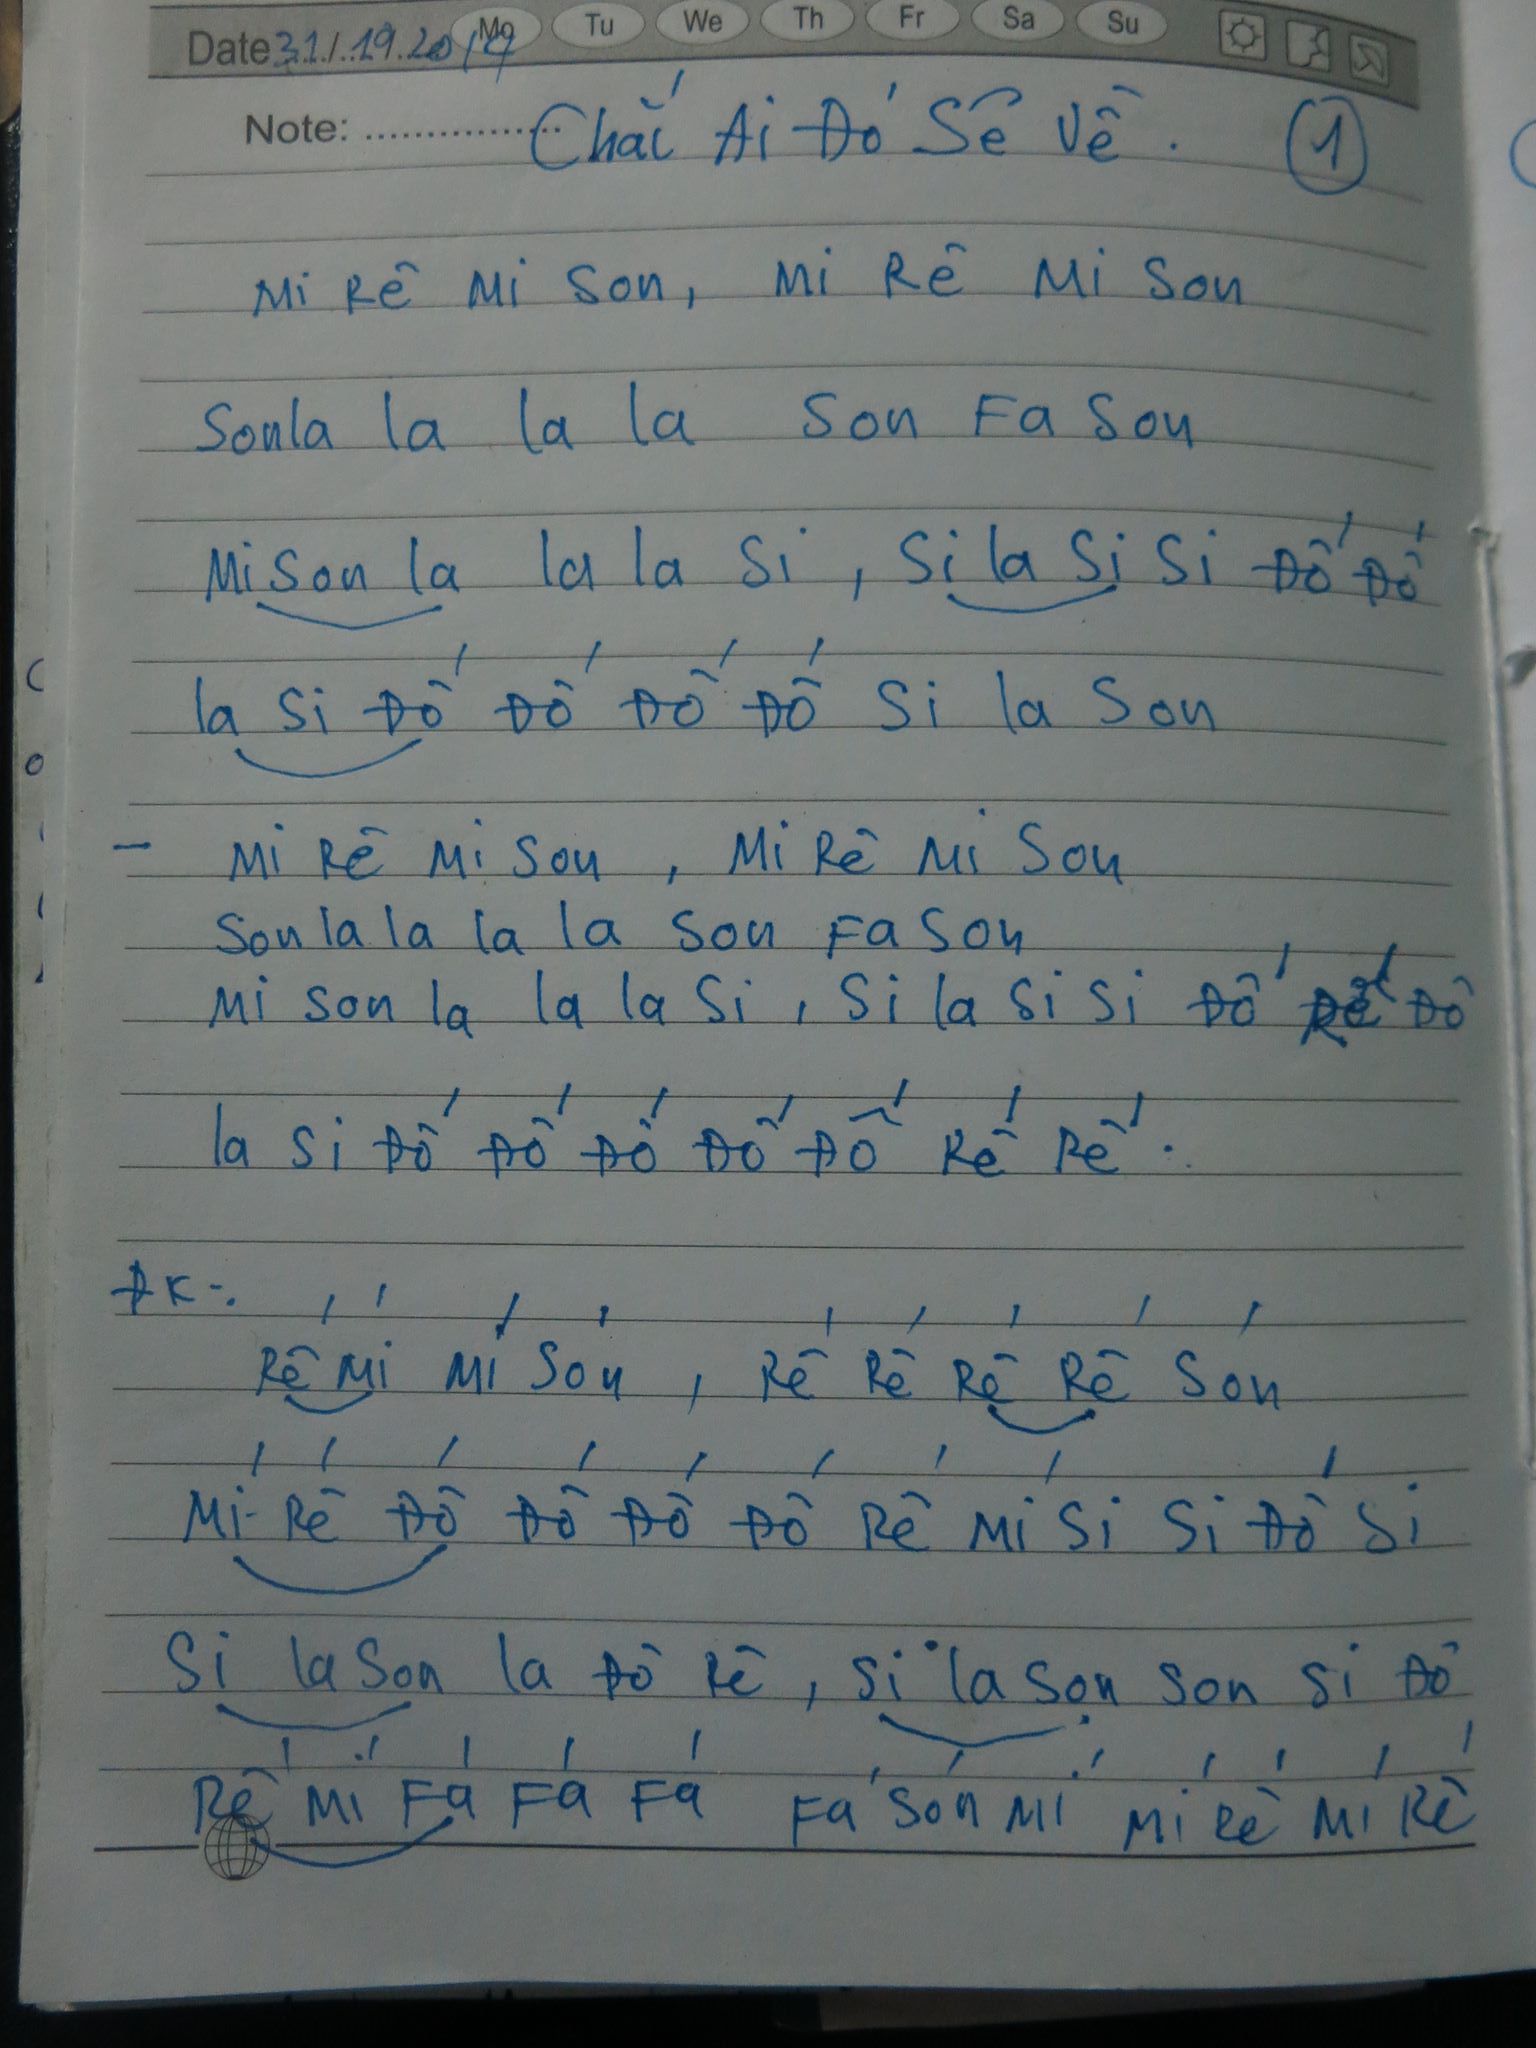 Date 31/.19.2019 Mo Tu We Th Fr Sa Su
Note: ................ Chắc Ai Đó Sẽ Về. 1
Mi Rê Mi Son, Mi Rê Mi Son
Sonla la la la Son Fa Son
Mi Son la la la Si, Si la Si Si Đố Đố
la Si Đố Đố Đố Đố Si la Son
- Mi Rê Mi Son, Mi Rê Mi Son
Son la la la la Son Fa Son
Mi Son la la la Si, Si la Si Si Đố Rế Đô
la Si Đố Đố Đố Đố Đố Rế Rế.
ĐK:
Rế Mí Mí Són, Rế Rế Rế Rế Són
Mí - Rế Đố Đố Đố Đố Rế Mí Si Si Đố Si
Si la Son la Đô Rê, Si la Son Son Si Đô
Rế Mí Fá Fá Fá Fá Són Mí Mí Rế Mí Rế